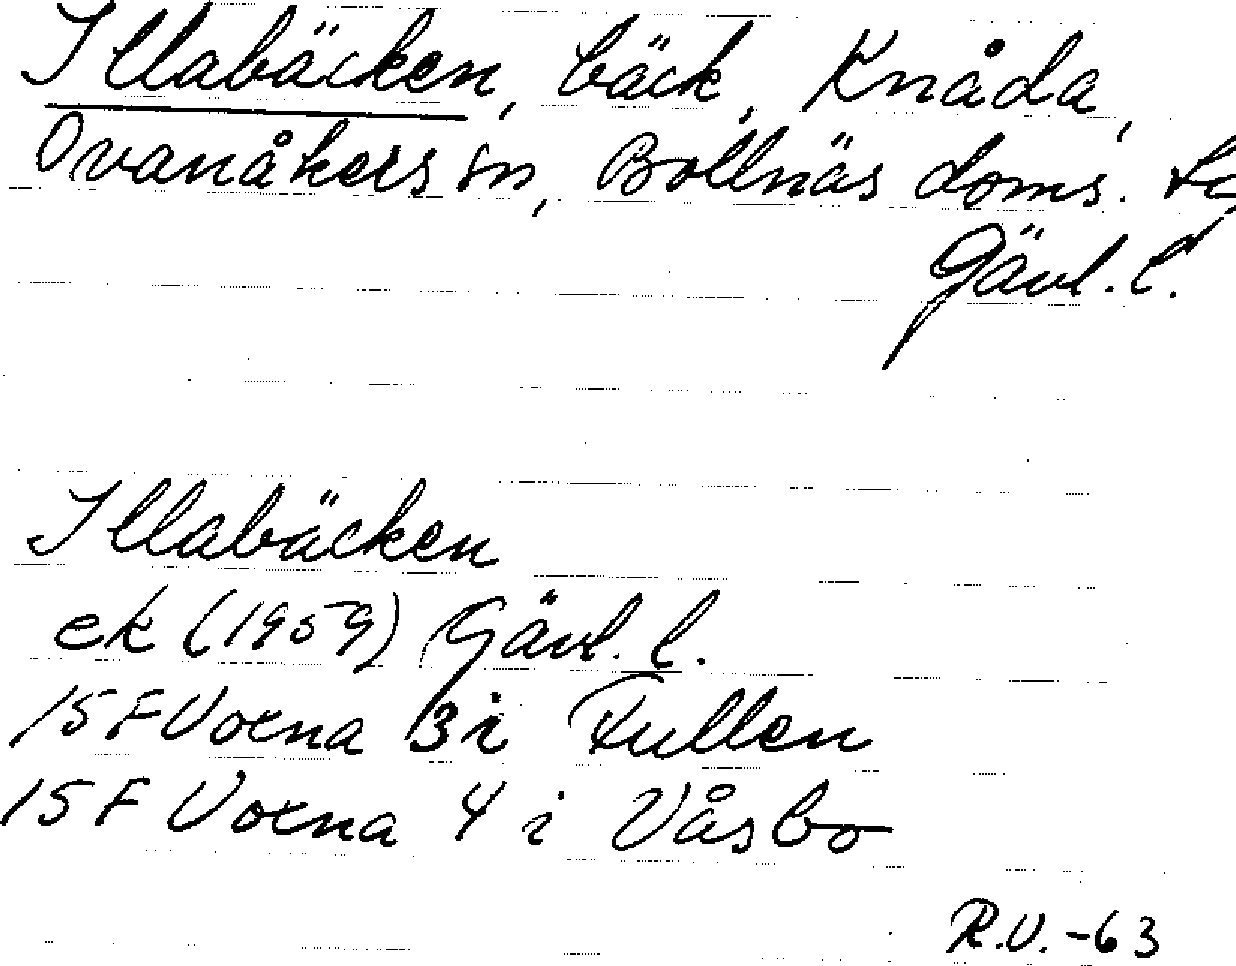 Illabäcken, bäck, Knåda,
Ovanåkers sn, Bollnäs doms.
Gävl. l.
Illabäcken
ek (1959) Gävl. l.
15 F Voxna 3 i Fullen
15 F Voxna 4 i Våsbo
R.V. -63